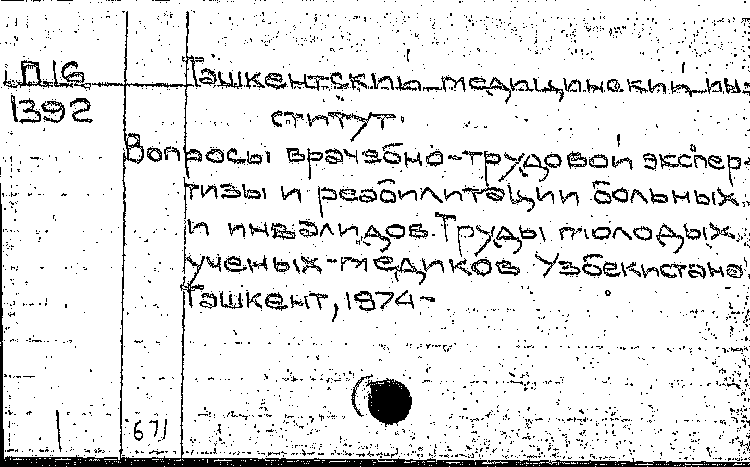 П16 Ташкентский медицинский ин-
1392 ститут.
Вопросы врачебно-трудовой экспер-
тизы и реабилитации больных
и инвалидов. Труды молодых
ученых-медиков Узбекистана.
Ташкент, 1974-
1 671